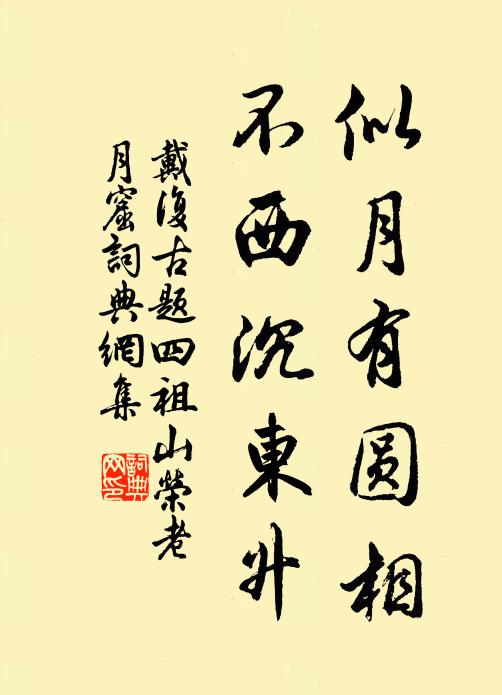 似月有圆相
不西沉東升
戴復古题四祖山榮老
月窟詞典網集
詞典
网印